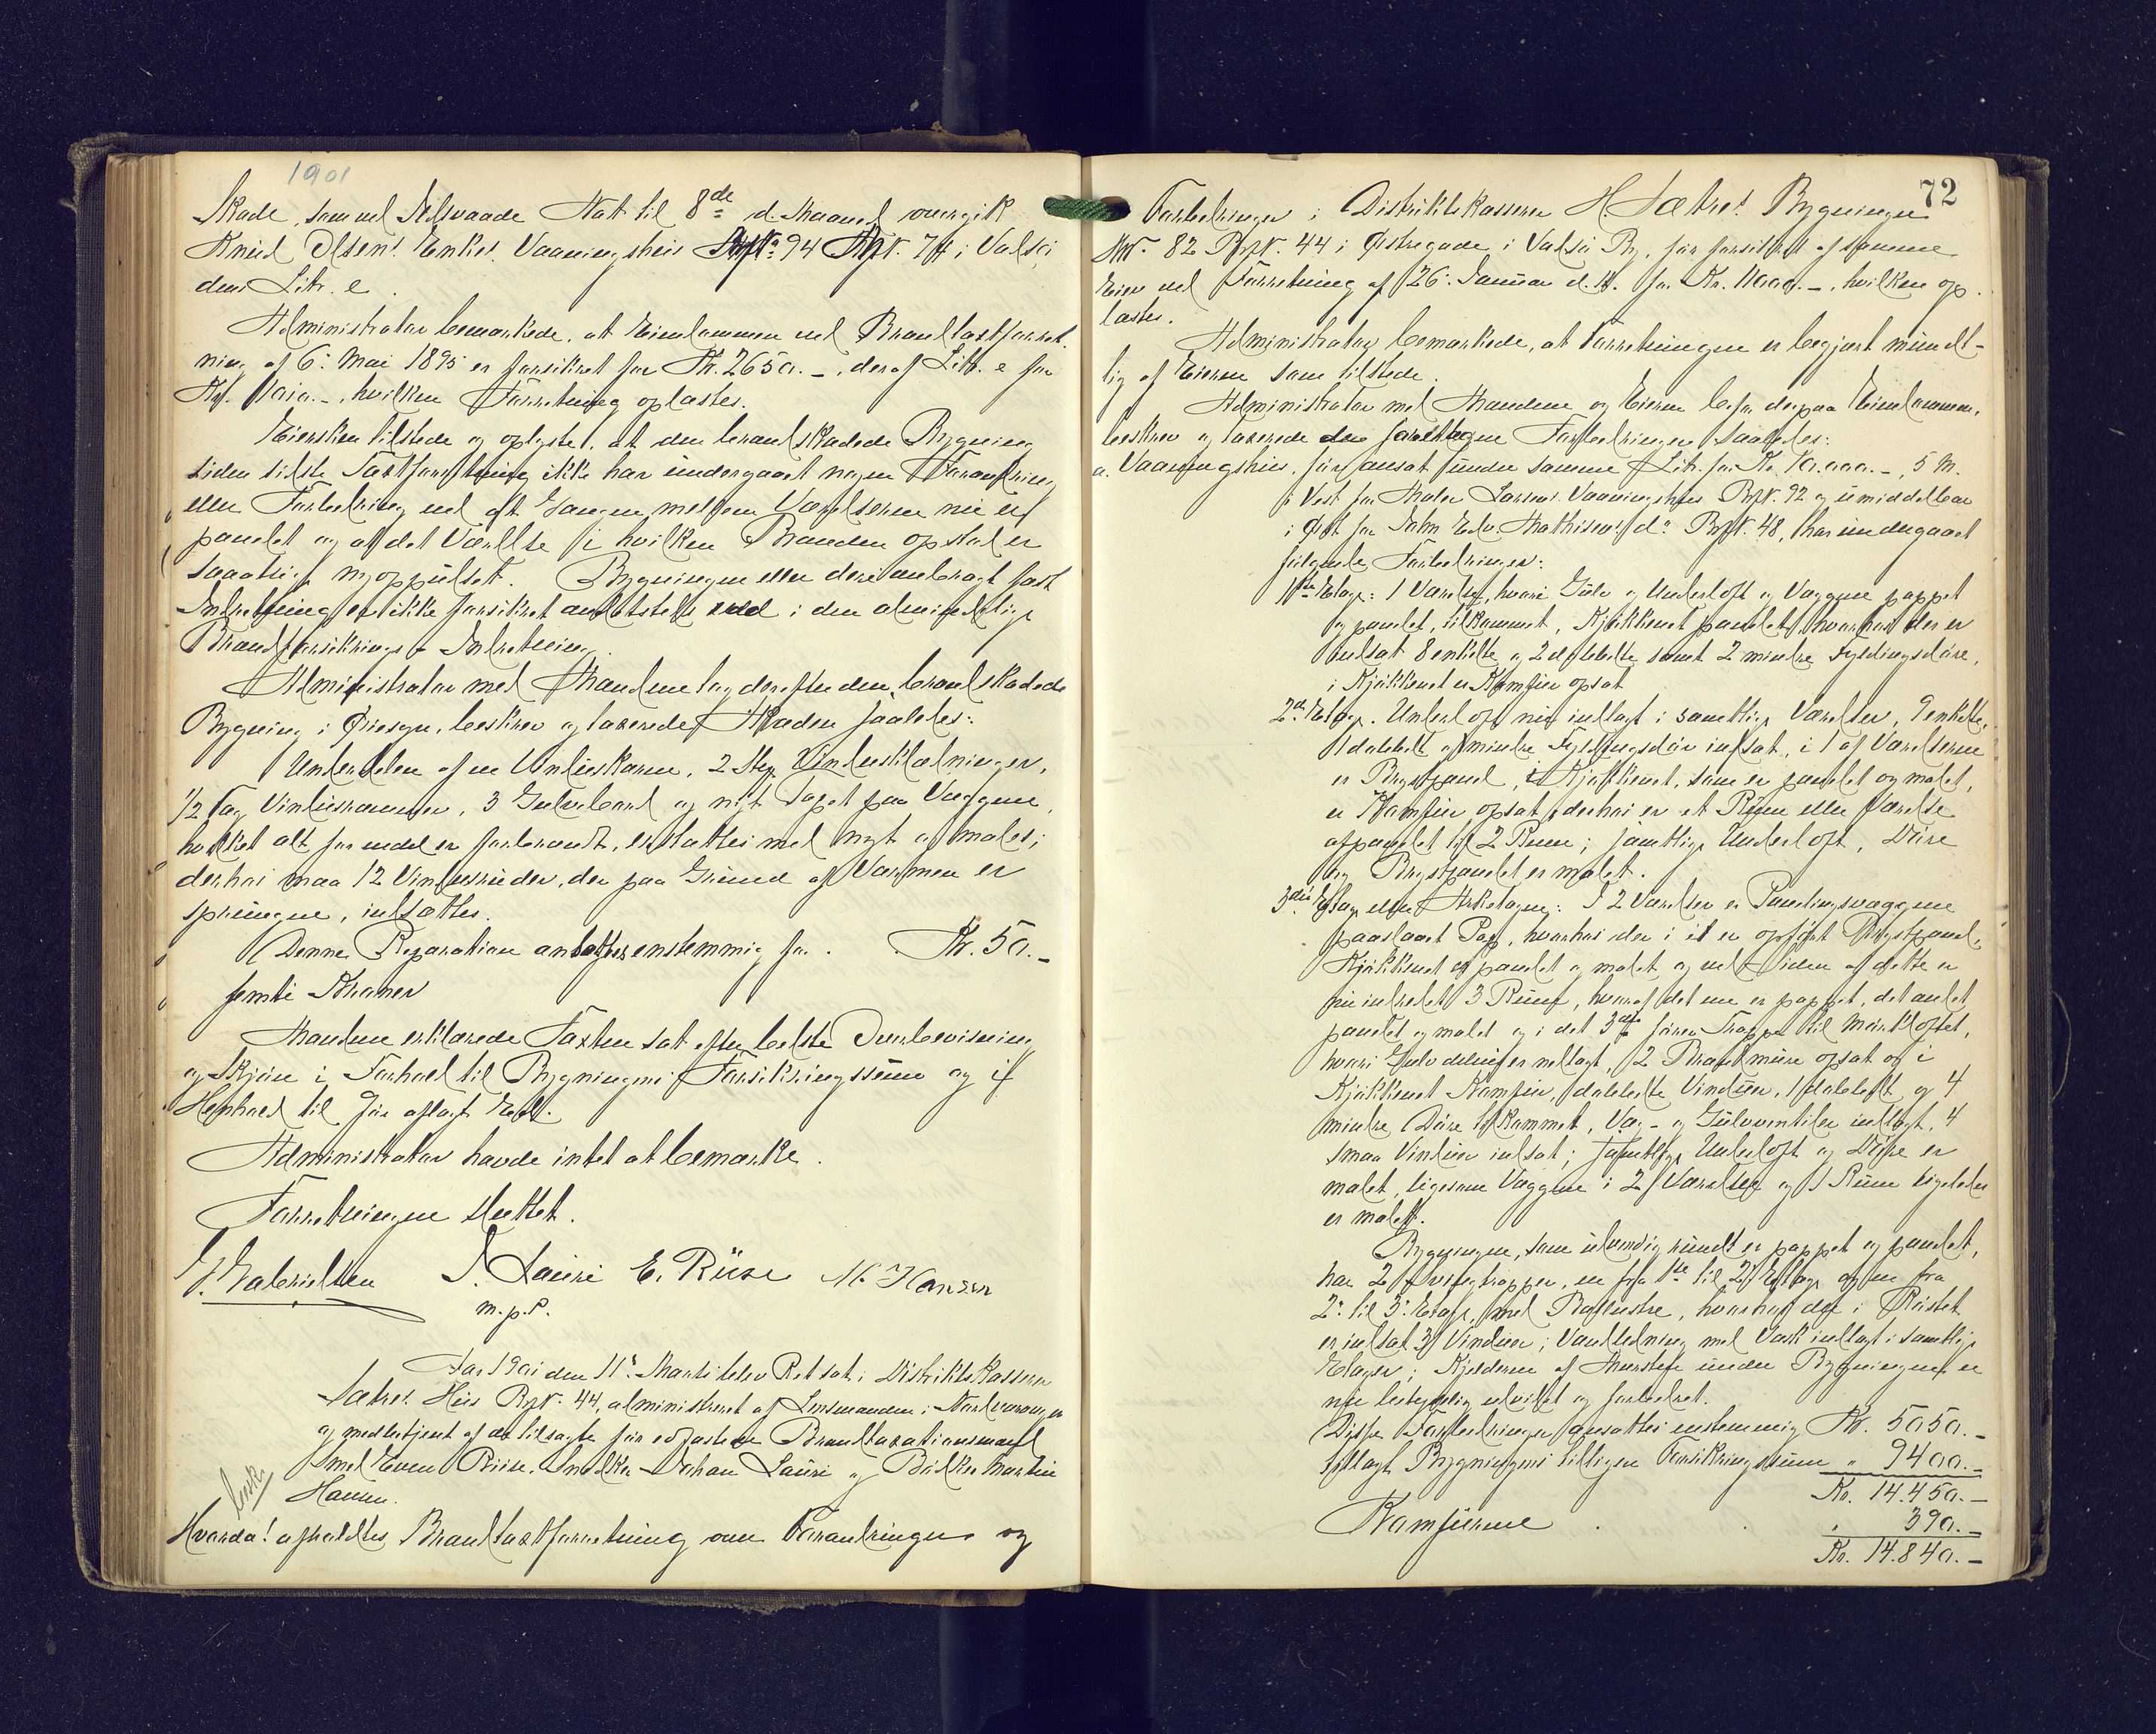 1901
Skade, som ved Ildsvaade Nat til 8de d. Maaned overgik
Knud Olsens Enkes Vaaningshus 94 Bygn. 74 i Vadsø,
dens Litr. e.
Administrator bemærkede, at Eiendommen ved Brandtaxtforret-
ning af 6. Mai 1895 er forsikret for Kr. 2650.-, deraf Litr. e for
Kr. hvilken Forretning oplæstes.
Eiersken tilstede og oplyste, at den brandskadede Bygning
siden sidste Taxtforretning ikke har undergaaet nogen Forandring
eller Forbedring ved at Gangen mellem Værelserne nu er
panelet og at det Værelse i hvilken Branden opstod er
nyoppudset. Bygningen eller deri anbragt fast
Indretning er ikke forsikret andetsteds end i den almindelige
Brandforsikrings-Indretning.
Administrator med Mændene tog derefter den brandskadede
Bygning i Øiesyn, beskrev og taxerede Skaden saaledes:
Underdelen af en Vindueskarm, 2 Stkr. Vinduesklædninger,
1/2 Fag Vinduesrammer, 3 Gulvbord og nyt Tapet paa Væggene,
hvilket alt for endel er forbrændt, erstattes med nyt og males;
derhos maa 12 Vinduesruder, der paa Grund af Varmen er
sprungne, indsættes.
Denne Reparation ansættes enstemmig for . Kr. 50.-
femti Kroner
Mændene erklærede Taxten sat efter bedste Overbevisning
og Skjøn i Forhold til Bygningens Forsikringssum og i
Henhold til før aflagt Ed.
Administrator havde intet at bemærke.
Forretningen sluttet.
J. Gabrielsen J. Lauri E. Riise M. Hansen
m.p.P.
Aar 1901 den 11te Marts blev Ret sat i Distriktskasserer
Sætres Hus Bygn. 44, administreret af Lensmanden i Nordvaranger
og medbetjent af de tilsagte før edfæstede Brandtaxationsmænd
Smed Even Riise, Snedker Johan Lauri og Bødker Martin
Hansen.
besk.
Hvorda! afholdtes Brandtaxtforretning over Forandringer og
72
Forbedringer i Distriktskasserer H. Sætres Bygninger
Mr. 82 Bygn. 44 i Østregade i Vadsø By, før forsikret af samme
Eier ved Forretning af 26. Januar d. A. for Kr. 11000.-, hvilken op-
læstes.
Administrator bemærkede, at Forretningen er begjært mundt-
lig af Eieren som tilstede.
Administrator med Mændene og Eieren befor derpaa Eiendommen,
beskrev og taxerede den foretagne Forbedringer saaledes:
a. Vaaningshus, før ansat under samme Litr. for Kr. 10.000.-, 5 M.
i Vest for Maler Larsens Vaaningshus Bygn. 92 og umiddelbar
i Øst for Edv. Mathisens do Bygn. 48, har undergaaet
følgende Forbedringer:
1ste Etage: 1 Værelse, hvori Gulv og Underloft og Væggene pappet
og panelet, tilkommet, Kjøkkenet panelet, hvorhos der er
indsat 8 enkelte og 2 dobbelte samt 2 mindre Fyldingsdøre,
i Kjøkkenet er Komfur opsat
2den Etage. Underloft nu indlagt i samtlige Værelser, 9 enkelte,
1 dobbelt og mindre Fyldingsdør indsat, i 1 af Værelserne
er Brystpanel, i Kjøkkenet, som er panelet og malet,
er Komfur opsat, derhos er et Rum eller Værelse
afpanelet til 2 Rum; samtlige Underloft, Døre
og Brystpanelet er malet.
3die Etage eller Arketagen: I 2 Værelser er Panelingsvæggene
paaslaaet Pap, hvorhos der i et er opført Brystpanel,
Kjøkkenet er panelet og malet og ved Siden af dette er
nu indredet 3 Rum, hvoraf det ene er pappet, det andet
panelet og malet og i det 3die fører Trappe til Mørkloftet,
hvori Gulv delvis er nedlagt, 2 Brandmure opsat og i
Kjøkkenet Komfur, dobbelte Vinduer, 1 dobbelt og 4
mindre Døre tilkommet, Væg- og Gulvventiler indlagt, 4
smaa Vinduer indsat; samtlige Underloft og Døre er
malet, ligesom Væggene i 2 Værelser og 1 Rum ligeledes
er malet.
Bygningen, som udvendig rundt er pappet og panelet,
har 2 Svingtrapper, en fra 1ste til 2den Etage og en fra
2. til 3. Etage, med Balustre, hvorhos der i Røstet
er indsat 3 Vinduer; Vandledning med Vask indlagt i samtlige
Etager; Kjelderen af Mursten under Bygningen er
nu betydelig udvidet og forbedret.
Disse Forbedringer ansættes enstemmig Kr. 5050.-
tillagt Bygningens tidligere Forsikringssum " 9400.-
Kr. 14.450.-
Komfurene . . . 390.-
Kr. 14.840.-